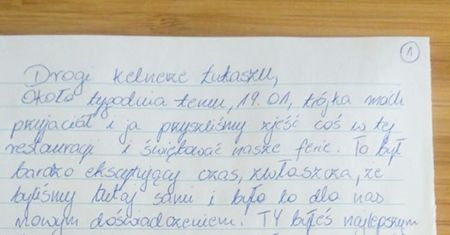 1
Drogi kelnerze Łukaszu,
Około tygodnia temu, 19.01, trójka moich
przyjaciół i ja przyszliśmy zjeść coś w tej
restauracji i świętować nasze ferie. To był
bardzo ekscytujący czas, zwłaszcza, że
byliśmy tutaj sami i było to dla nas
nowym doświadczeniem. TY byłeś najlepszym